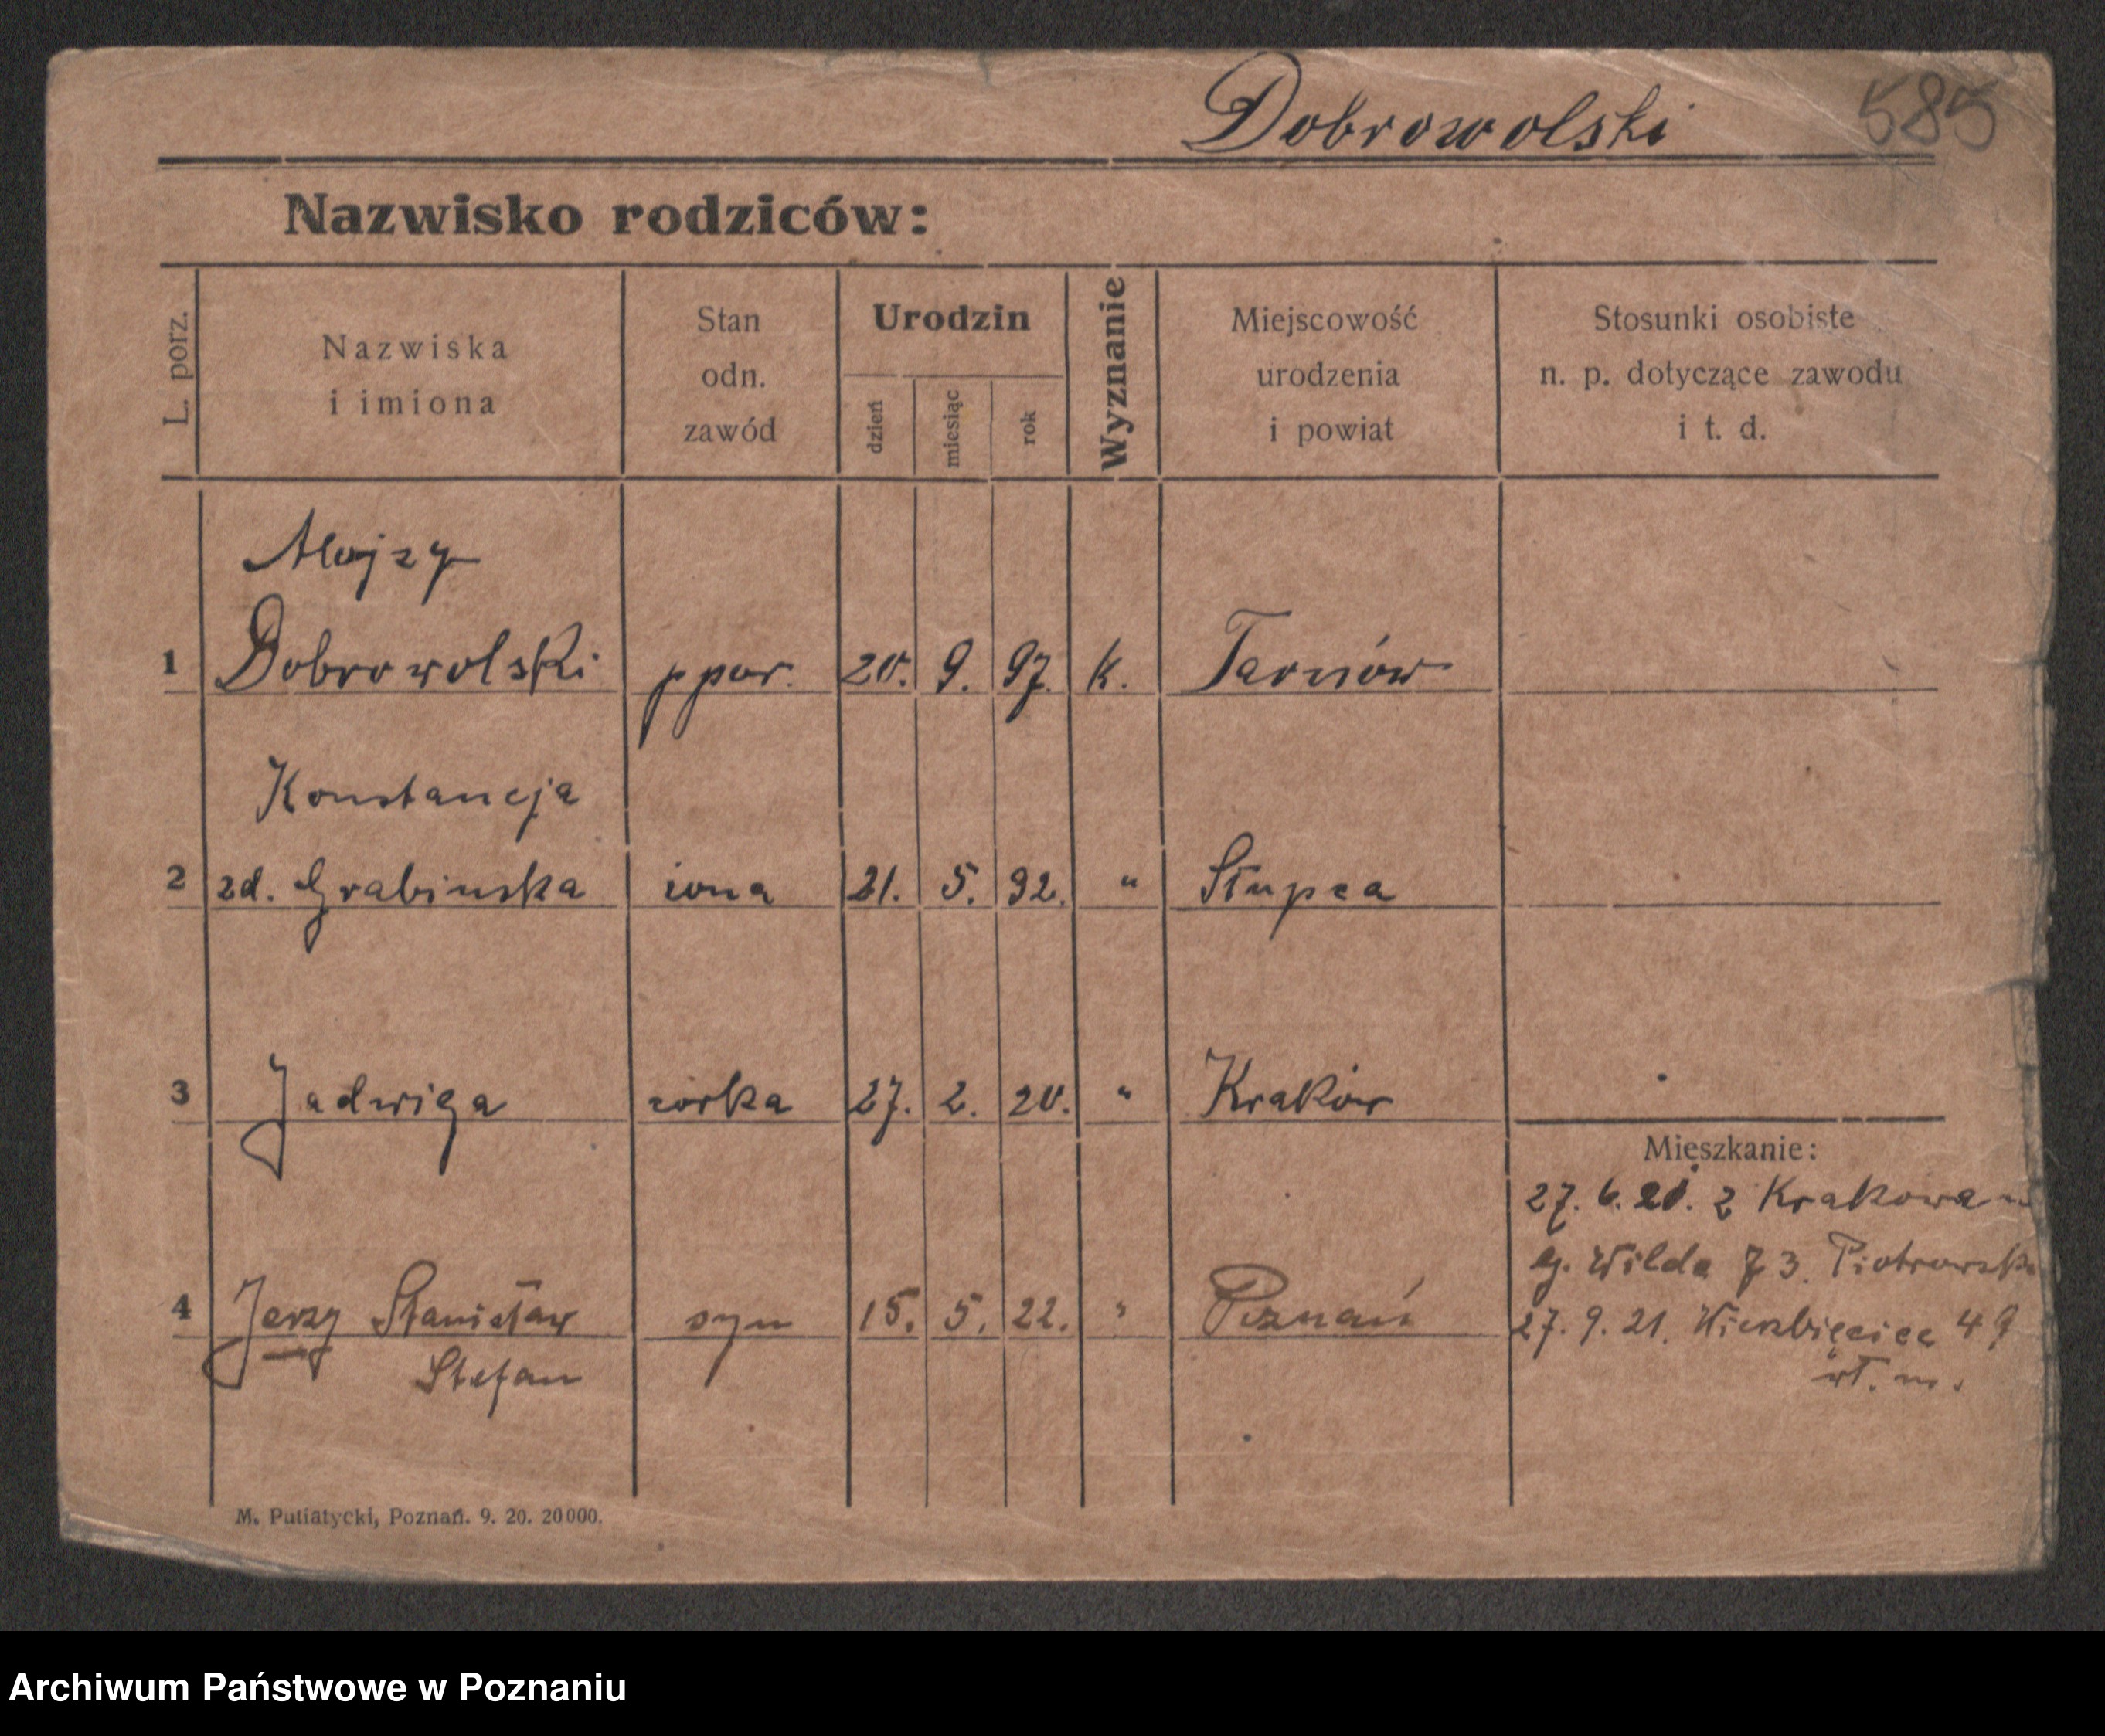 Dobrowolski 585
Nazwisko rodziców:
L. porz.
Nazwiska
i imiona
Stan
odn.
zawód
Urodzin
dzień
miesiąc
rok
Wyznanie
Miejscowość
urodzenia
i powiat
Stosunki osobiste
n. p. dotyczące zawodu
i t. d.
Alojzy
1 Dobrowolski ppor. 20. 9. 97. k. Tarnów
Konstancja
2 zd. Grabinska żona 21. 5. 92. " Słupca
3 Jadwiga córka 27. 2. 20. " Kraków
Mieszkanie:
27. 6. 21. z Krakowa
Wilda 73. Piotrowski
4 Jerzy Stanisław syn 15. 5. 22. " Poznań
27. 9. 21. Wierzbięcice 49
Stefan
wł. m.
M. Putiatycki, Poznań. 9. 20. 20000.
Archiwum Państwowe w Poznaniu